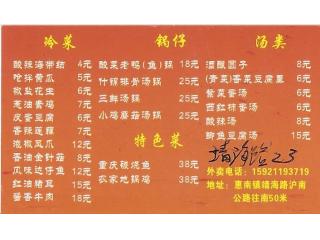 冷菜
酸辣海带结 4元
呛拌黄瓜 5元
椒盐花生 6元
葱油素鸡 7元
皮蛋豆腐 6元
香辣莲藕 7元
泡椒凤爪 12元
香油金针菇 8元
瓜味达仔鱼 12元
红油猪耳 15元
酱香牛肉 18元
锅仔
酸菜老鸭(鱼)锅 18元
什锦排骨汤锅 25元
三鲜汤锅 25元
小鸡蘑菇汤锅 25元
特色菜
重庆碳烧鱼 38元
农家地锅鸡 38元
汤类
酒酿圆子 8元
(青菜)香菜豆腐羹 6元
紫菜蛋汤 6元
西红柿蛋汤 6元
酸辣汤 8元
鲫鱼豆腐汤 15元
靖海路23
外卖电话:15921193719
地址:惠南镇靖海路沪南
公路往南50米